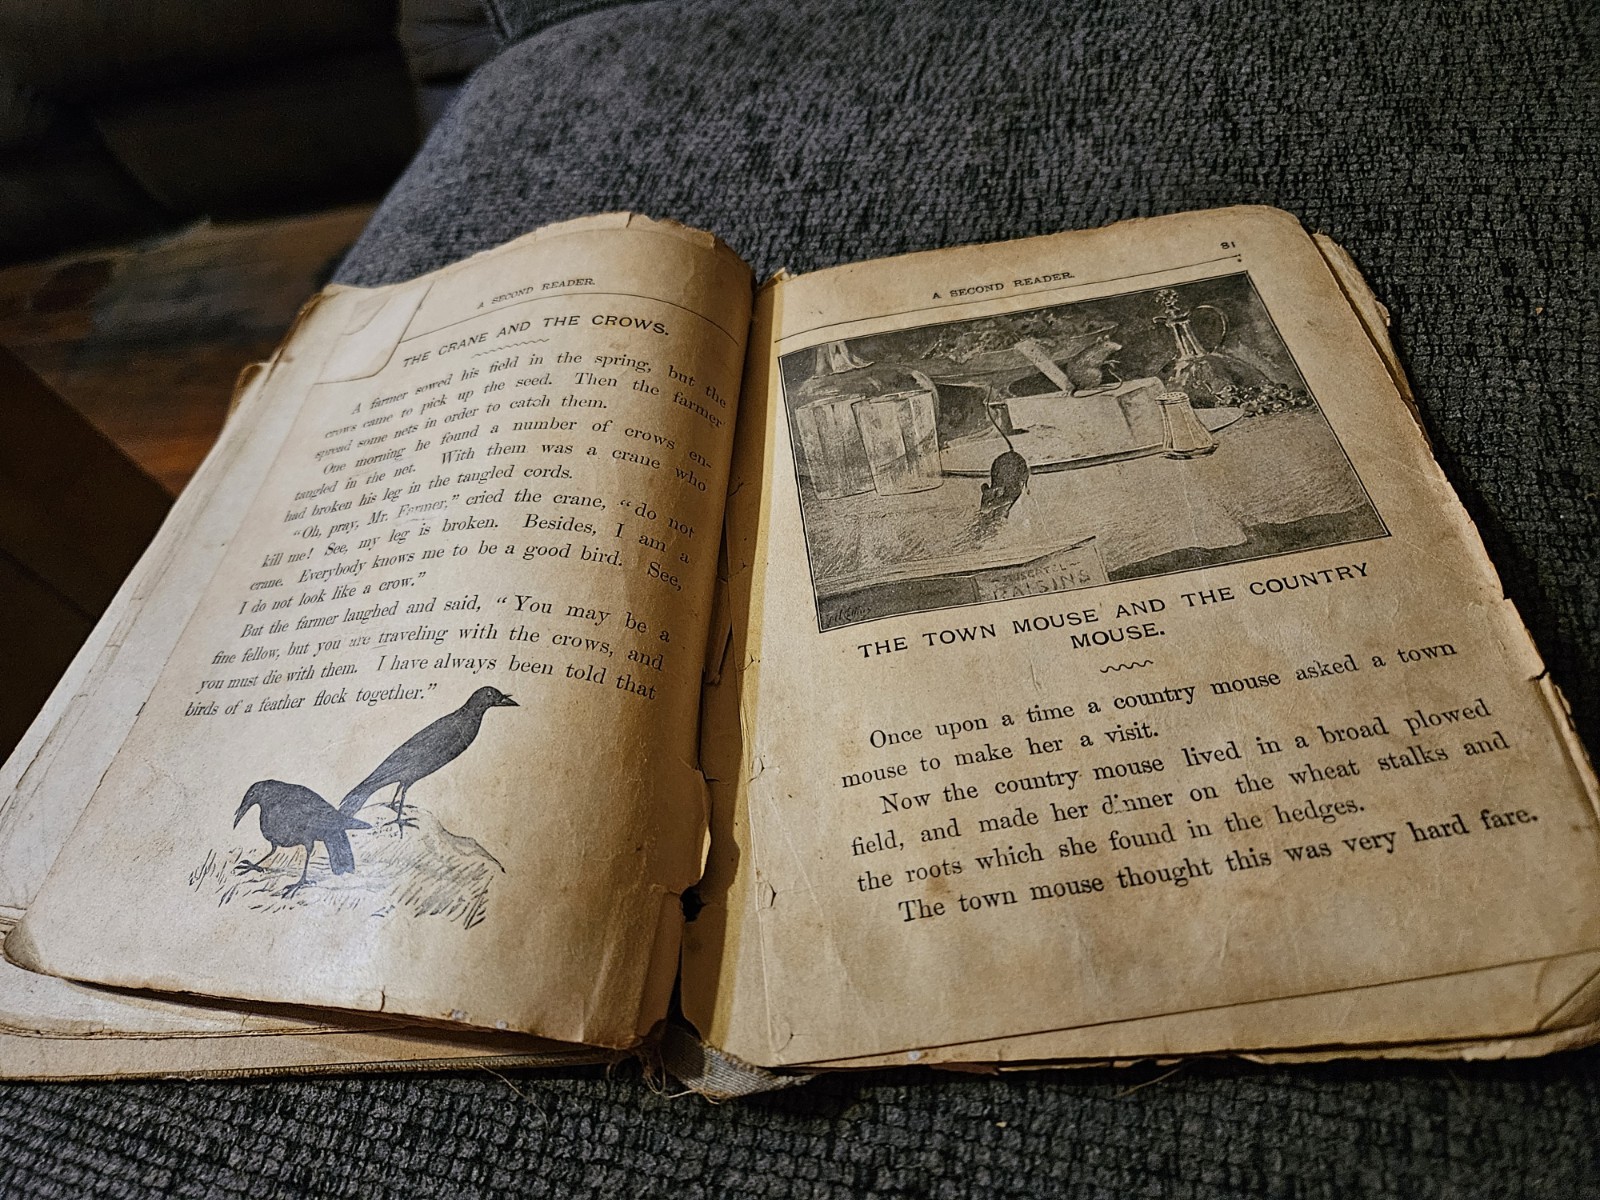 A SECOND READER.
THE CRANE AND THE CROWS.
A farmer sowed his field in the spring, but the
crows came to pick up the seed. Then the farmer
spread some nets in order to catch them.
One morning he found a number of crows en-
tangled in the net. With them was a crane who
had broken his leg in the tangled cords.
"Oh, pray, Mr. Farmer," cried the crane, "do not
kill me! See, my leg is broken. Besides, I am a
crane. Everybody knows me to be a good bird. See,
I do not look like a crow."
But the farmer laughed and said, "You may be a
fine fellow, but you are traveling with the crows, and
you must die with them. I have always been told that
birds of a feather flock together."
A SECOND READER.
81
RAISINS
THE TOWN MOUSE AND THE COUNTRY
MOUSE.
Once upon a time a country mouse asked a town
mouse to make her a visit.
Now the country mouse lived in a broad plowed
field, and made her dinner on the wheat stalks and
the roots which she found in the hedges.
The town mouse thought this was very hard fare.